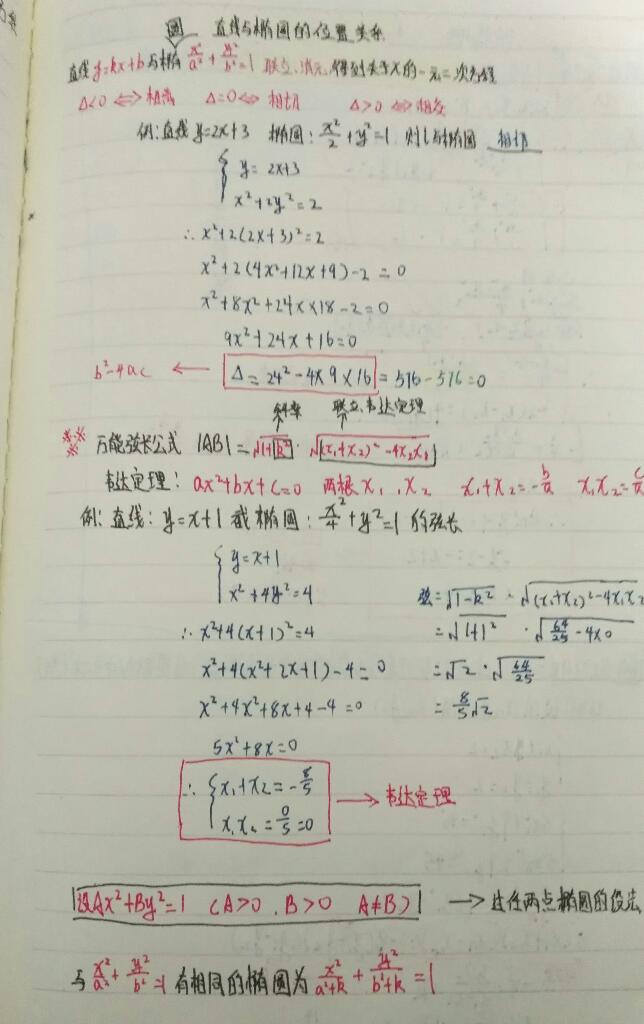 直线与椭圆的位置关系
直线y=kx+b与椭 x²/a²+y²/b²=1 联立、消元,得到关于x的一元二次方程
Δ<0⇔相离 Δ=0⇔相切 Δ>0⇔相交
例:直线y=2x+3 椭圆:x²/2+y²=1 则l与椭圆 相切
{y=2x+3
x²+2y²=2
∴x²+2(2x+3)²=2
x²+2(4x²+12x+9)-2=0
x²+8x²+24x+18-2=0
9x²+24x+16=0
b²-4ac ← Δ=24²-4×9×16=576-576=0
斜率 联立、韦达定理
※※ 万能弦长公式 |AB|=√(1+k²)·√((x₁+x₂)²-4x₁x₂)
韦达定理:ax²+bx+c=0 两根x₁,x₂ x₁+x₂=-b/a x₁x₂=c/a
例:直线:y=x+1 截椭圆:x²/4+y²=1的弦长
{y=x+1
x²+4y²=4
∴x²+4(x+1)²=4
x²+4(x²+2x+1)-4=0
x²+4x²+8x+4-4=0
5x²+8x=0
∴{x₁+x₂=-8/5
x₁x₂=0/5=0
→韦达定理
弦=√(1-k²)·√((x₁+x₂)²-4x₁x₂
=√(1+1²)·√(64/25-4×0)
=√2·√(64/25)
=8/5√2
设Ax²+By²=1 (A>0,B>0 A≠B) →过任两点椭圆的设法
与x²/a²+y²/b²=1有相同的椭圆为x²/(a²+k)+y²/(b²+k)=1